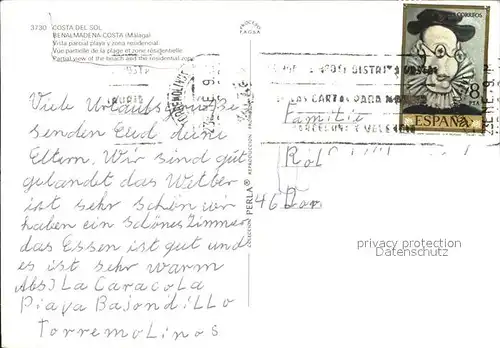 3730 COSTA DEL SOL
BENALMADENA-COSTA (Málaga)
Vista parcial playa y zona residencial.
Vue partielle de la plage et zone résidentielle.
Partial view of the beach and the residential zone.
Viele Urlaubsgrüße
senden Eud deine
Eltern. Wir sind gut
gelandet das Wetter
ist sehr schön wir
haben ein schönes Zimmer
das Essen ist gut und
es ist sehr warm
Abs) La Caracola
Playa Bajondillo
Torremolinos
COLECCION PERLA®
CORREOS
8
PTA
ESPAÑA
DISTRITO POSTAL
LAS CARTAS PARA MA
BARCELONA Y VALENCIA
TORREMOLINOS
Familie
46 Dor
privacy protection
Datenschutz